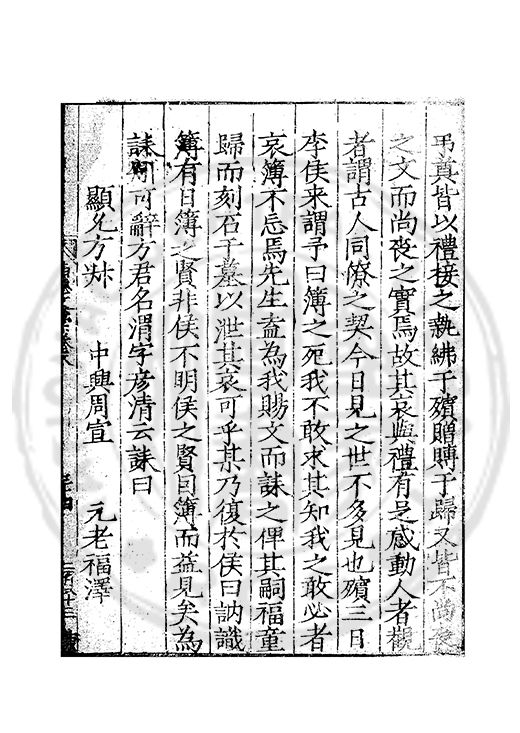 弔奠皆以禮接之執紼于殯贈賻于歸又皆不尚喪
之文而尚喪之實焉故其哀與禮有足感動人者觀
者謂古人同僚之契今日見之世不多見也殯三日
李侯来謂予曰簿之死我不敢求其知我之敢必者
哀簿不忘焉先生盍為我賜文而誄之俾其嗣福童
歸而刻石于墓以泄其哀可乎某乃復於侯曰訥識
簿有日簿之賢非侯不明侯之賢因簿而益見矣為
誄何可辭方君名渭字彦清云誄曰
顯允方叔 中興周宣 元老福澤